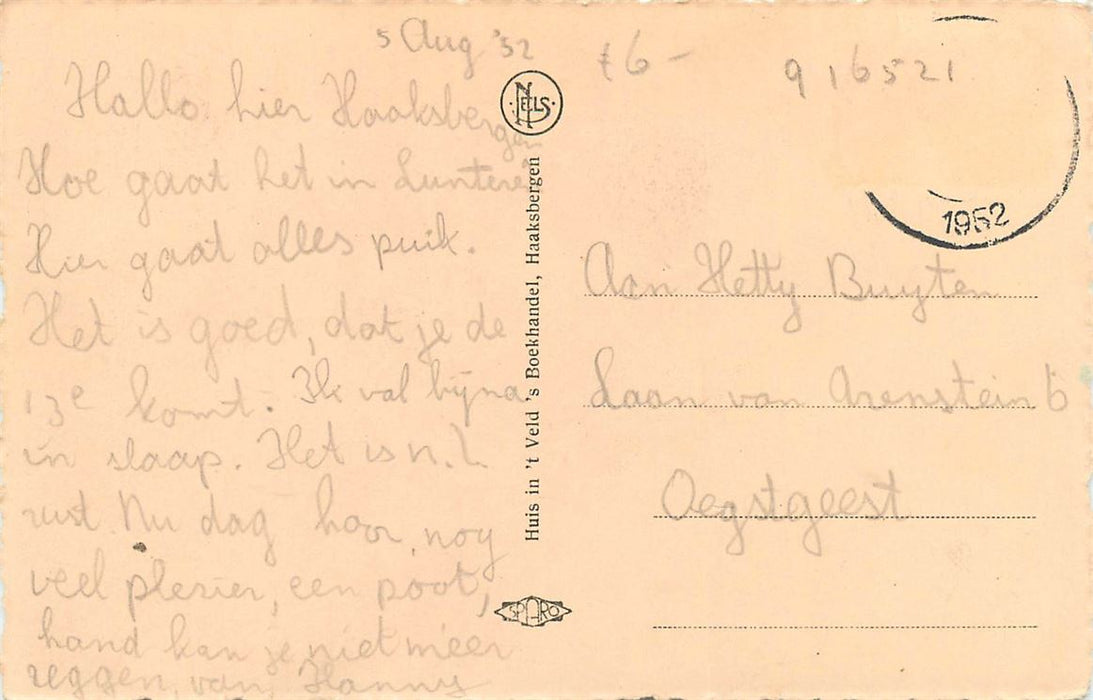 5 Aug '52
Hallo hier Haaksbergen
Hoe gaat het in Lunteren
Hier gaat alles puik.
Het is goed, dat je de
13e komt. Ik val bijna
in slaap. Het is n.l.
rust. Nu dag hoor, nog
veel plesier, een poot,
hand kan je niet meer
zeggen, van Hanny
NELS
Huis in 't Veld 's Boekhandel, Haaksbergen
SPARO
£6-
916521
1952
Aan Hetty Buyten
Laan van Arenstein 6
Oegstgeest